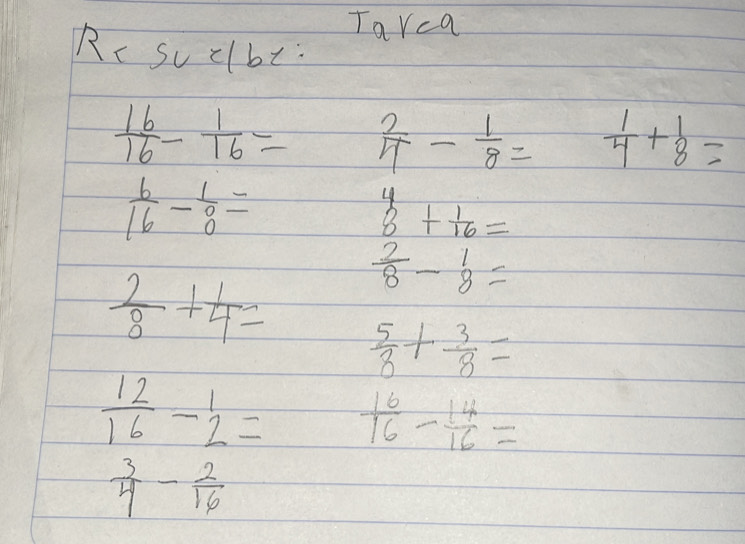 Tarea
Resuelbe:
16/16 - 1/16 =
2/4 - 1/8 =
1/4 + 1/8 =
6/16 - 1/8 =
4/8 + 1/16 =
2/8 - 1/8 =
2/8 + 1/4 =
5/8 + 3/8 =
12/16 - 1/2 =
16/16 - 14/16 =
3/4 - 2/16